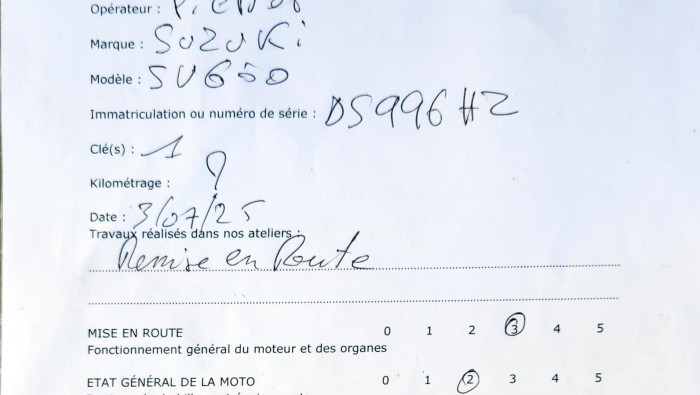 Opérateur :
Marque : SUZUKi
Modèle : SV650
Immatriculation ou numéro de série : DS996HZ
Clé(s) : 1
Kilométrage : ?
Date : 3/07/25
Travaux réalisés dans nos ateliers :
Remise en Route
MISE EN ROUTE 0 1 2 3 4 5
Fonctionnement général du moteur et des organes
ETAT GÉNÉRAL DE LA MOTO 0 1 2 3 4 5